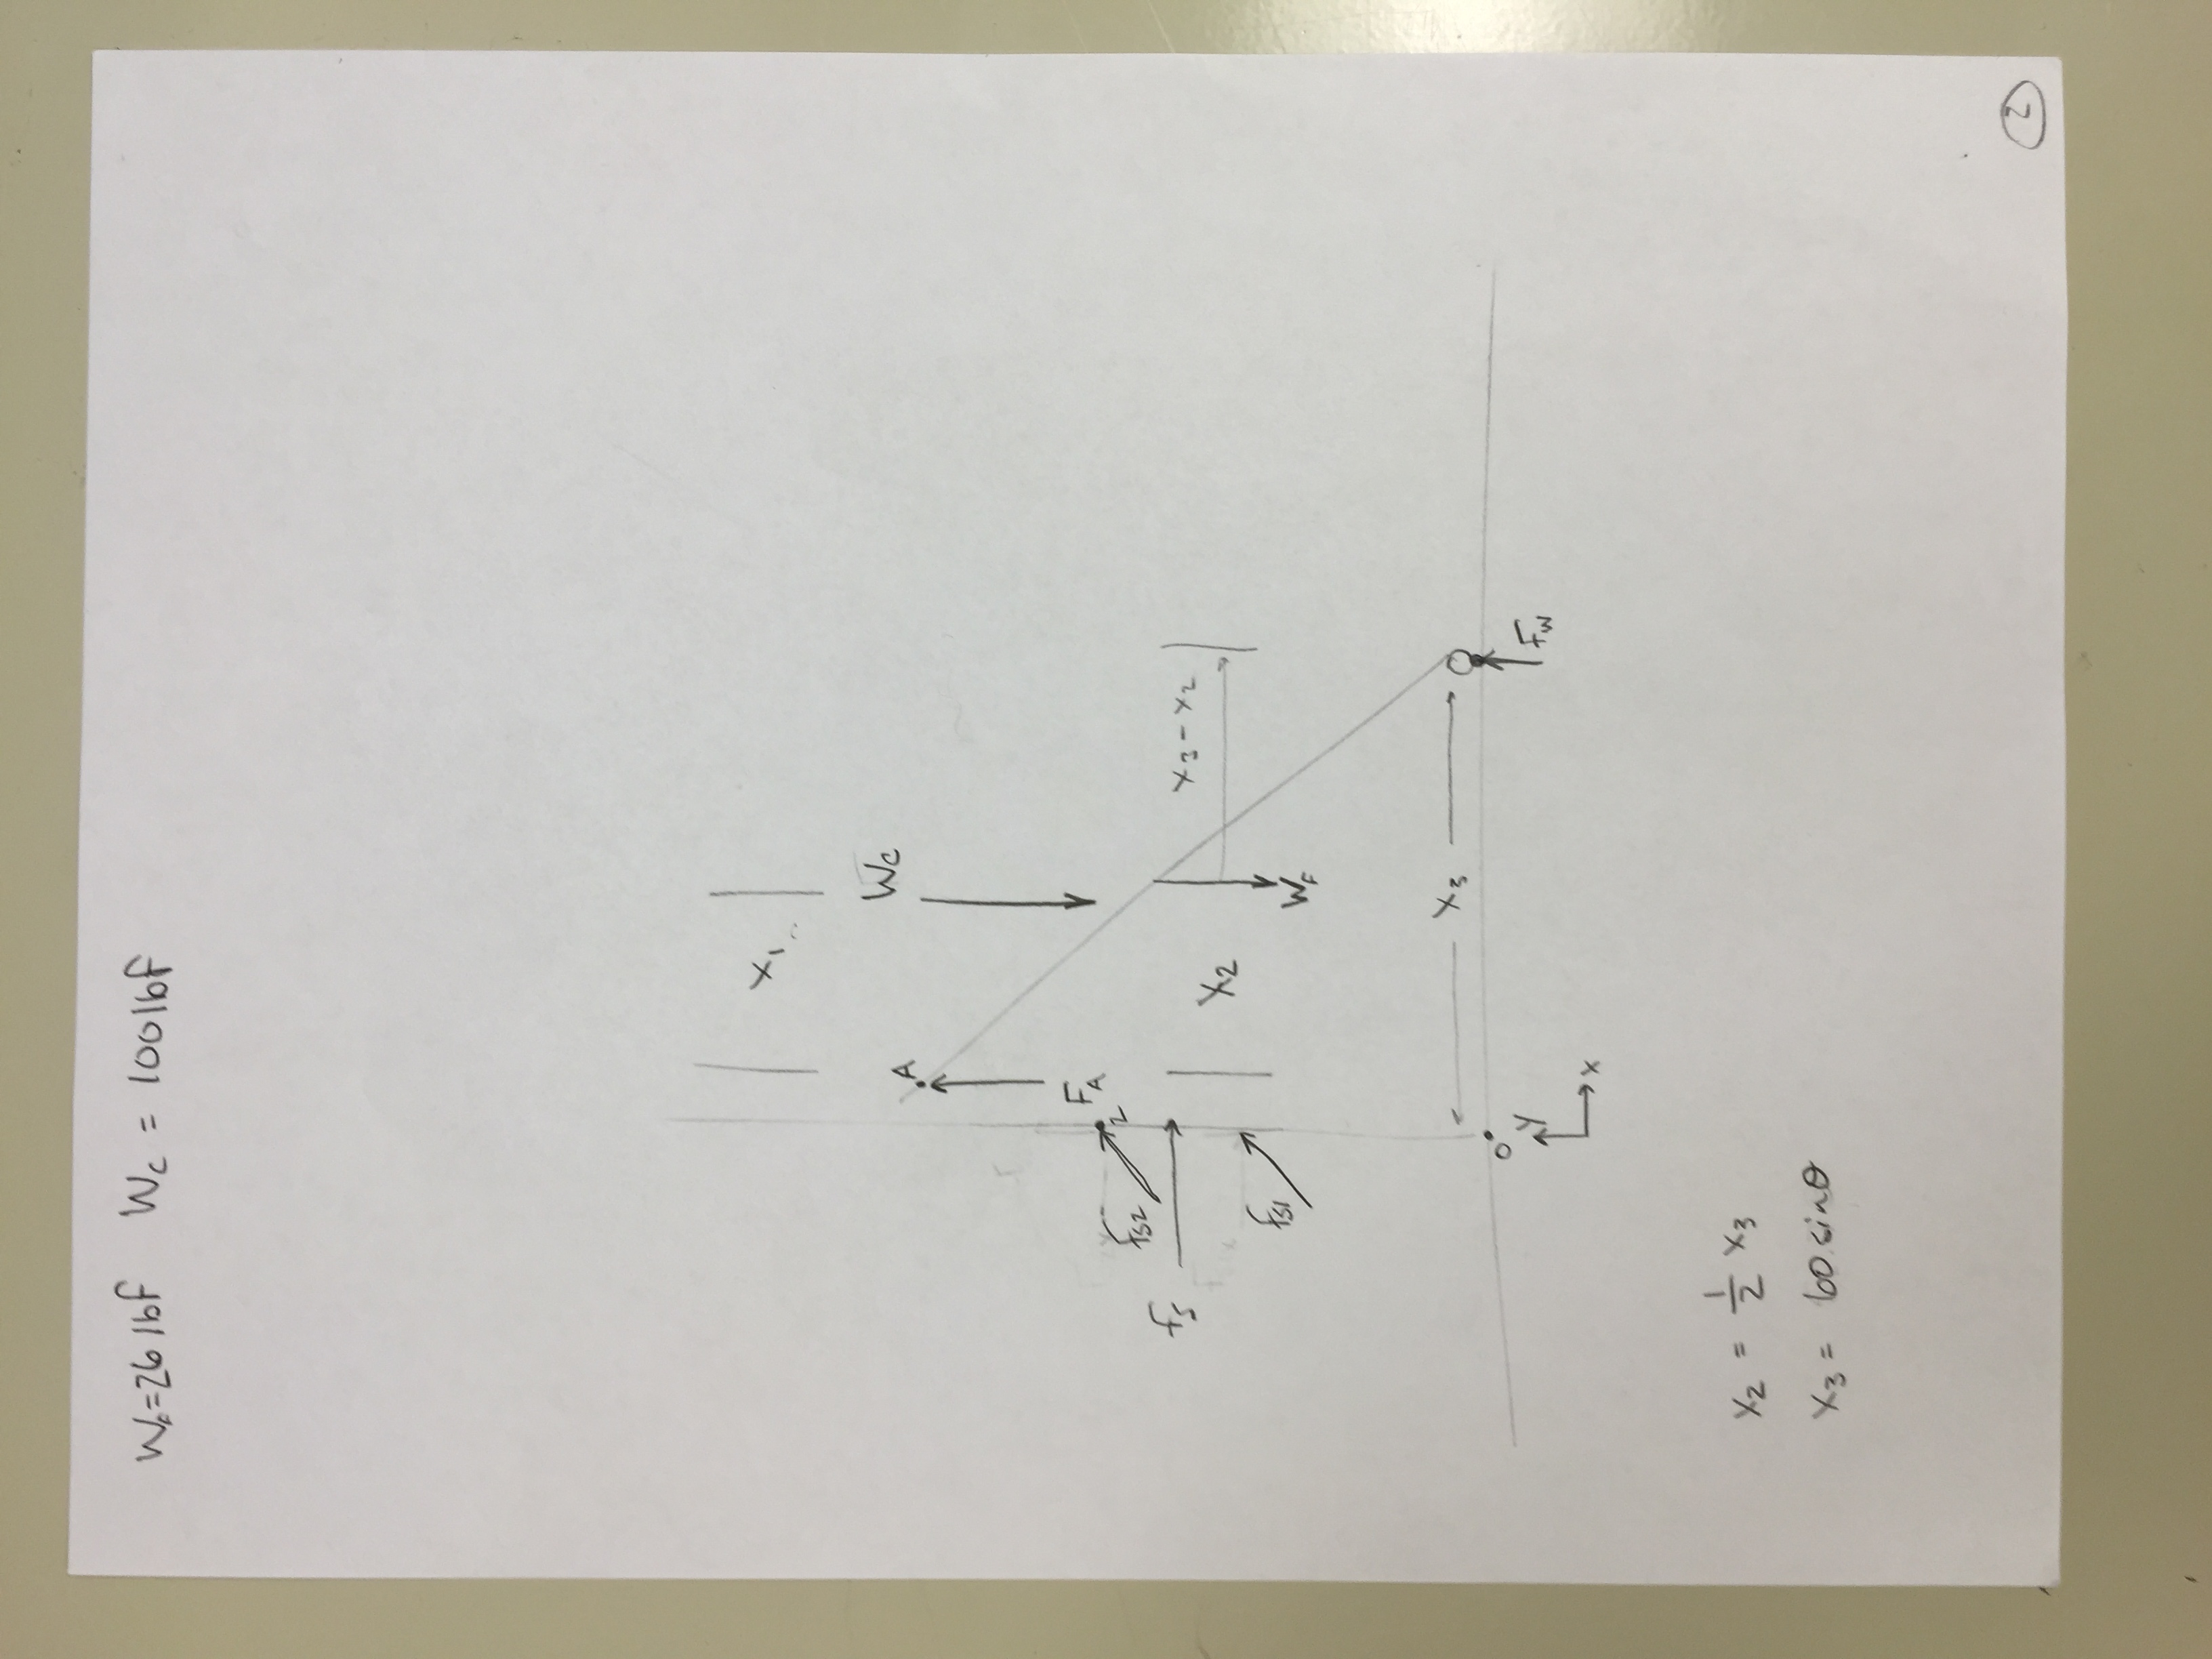 W_F=26 lbf W_C = 100 lbf
X_1
W_C
A
F_A
2
f_S2
f_S
X_3 - X_2
X_2
f_S1
W_F
X_3
O
Y
F_W
X
X_2 = 1/2 X_3
X_3 = 60 sinθ
2